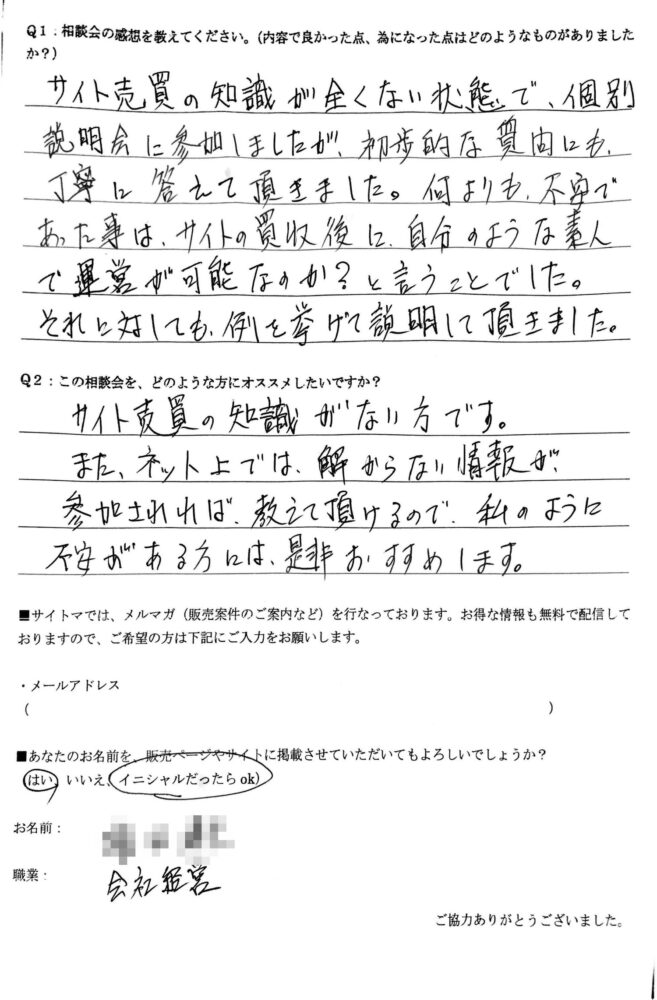 Q1：相談会の感想を教えてください。（内容で良かった点、為になった点はどのようなものがありました
か？）
サイト売買の知識が全くない状態で、個別
説明会に参加しましたが、初歩的な質問にも、
丁寧に答えて頂きました。何よりも、不安で
あった事は、サイトの買収後に、自分のような素人
で運営が可能なのか？と言うことでした。
それに対しても、例を挙げて説明して頂きました。
Q2：この相談会を、どのような方にオススメしたいですか？
サイト売買の知識がない方です。
また、ネット上では、解からない情報が、
参加されれば、教えて頂けるので、私のように
不安がある方には、是非おすすめします。
■サイトマでは、メルマガ（販売案件のご案内など）を行なっております。お得な情報も無料で配信して
おりますので、ご希望の方は下記にご入力をお願いします。
・メールアドレス
（ ）
■あなたのお名前を、販売ページやサイトに掲載させていただいてもよろしいでしょうか？
（はい、いいえ、イニシャルだったら ok）
お名前：
職業： 会社経営
ご協力ありがとうございました。